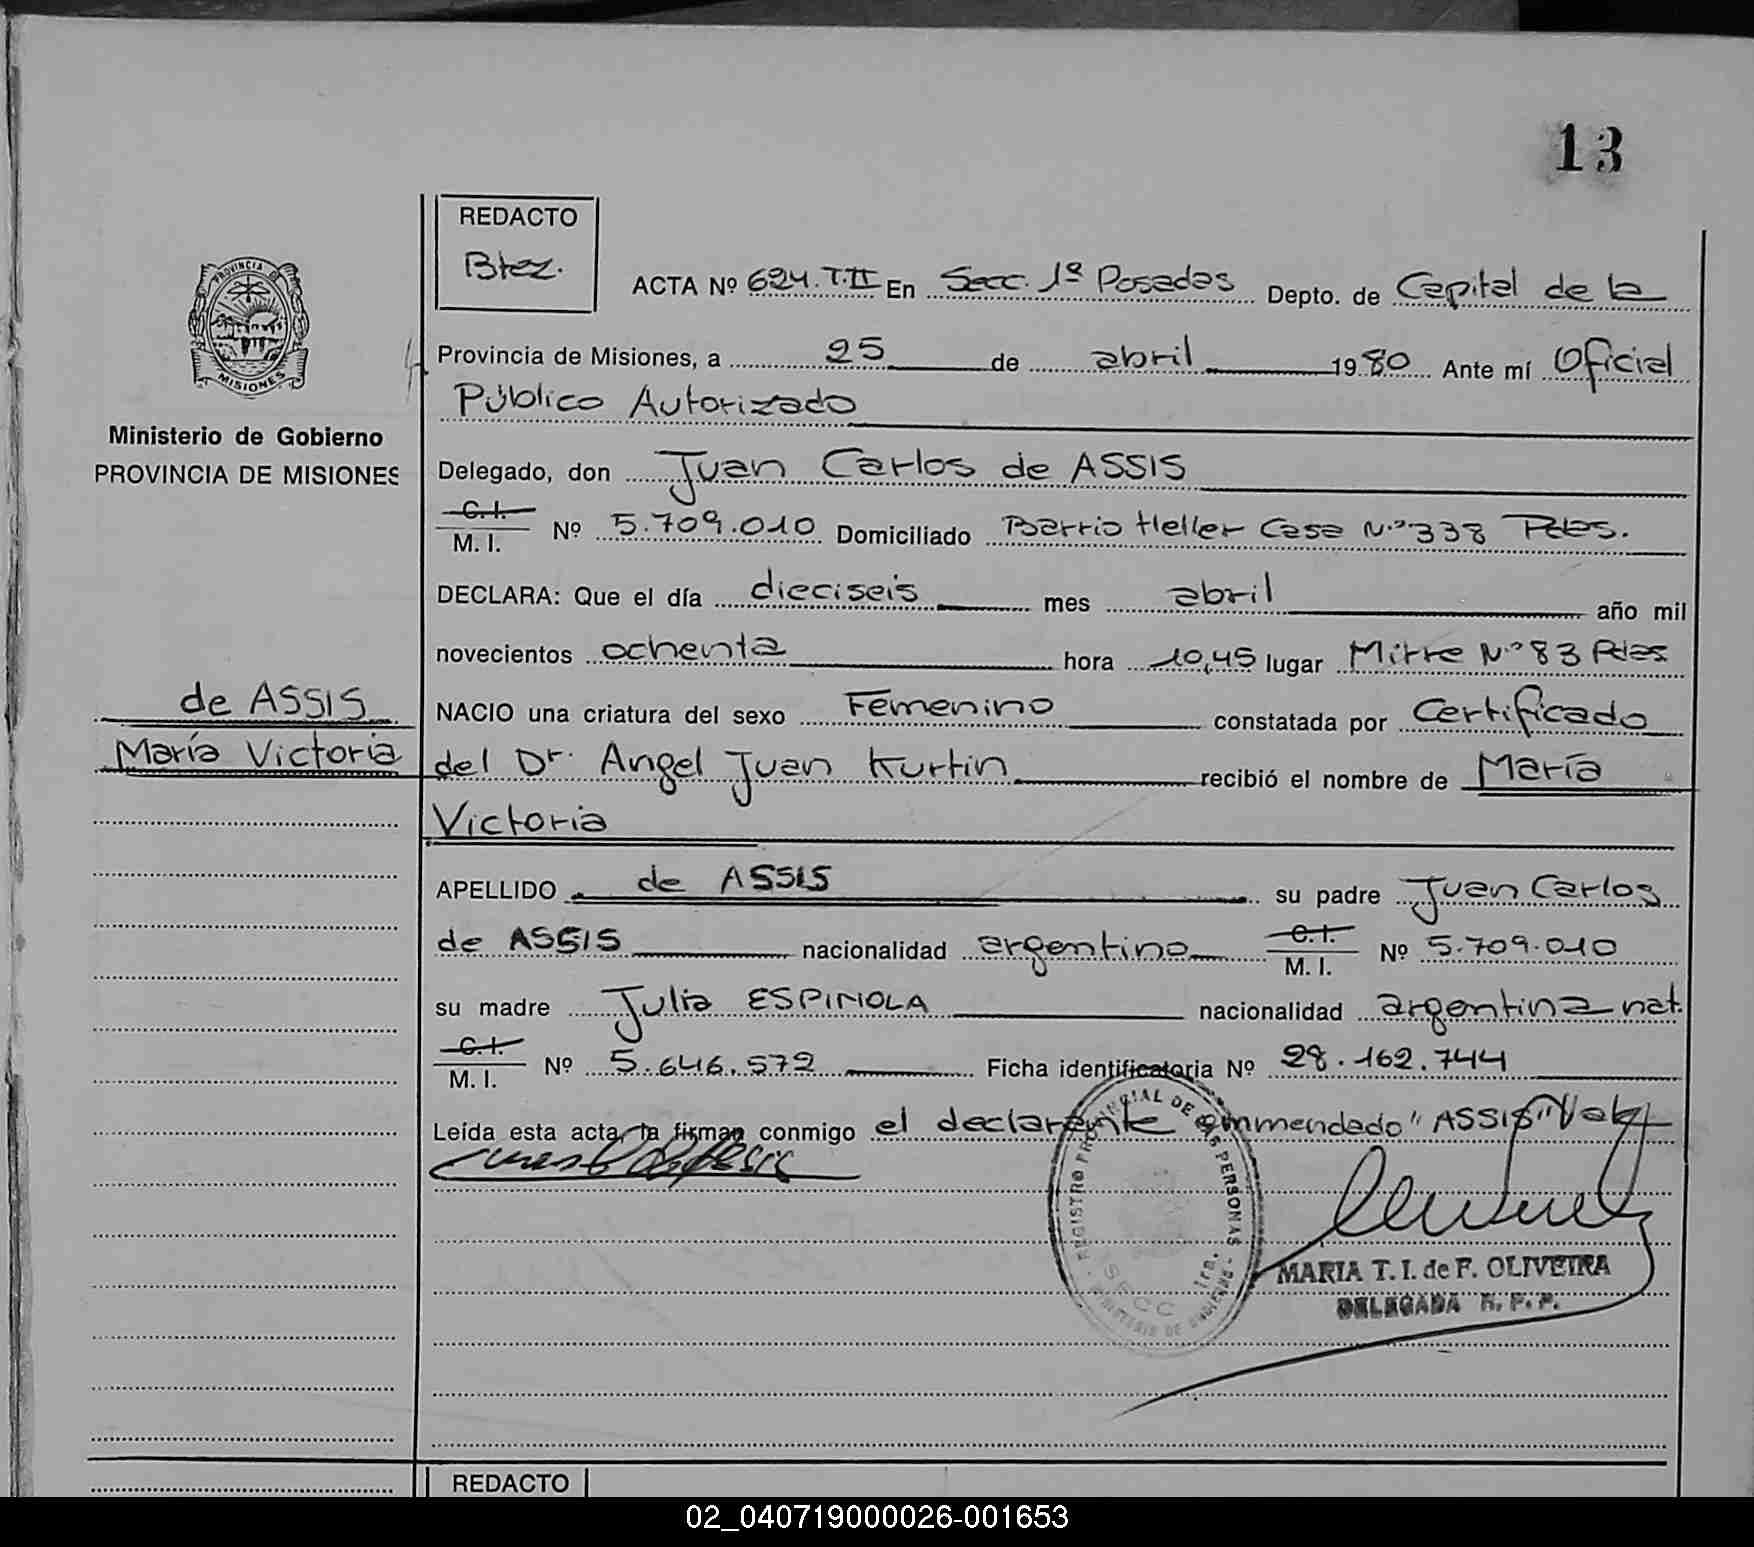 13
REDACTO
Btez.
PROVINCIA DE
MISIONES
Ministerio de Gobierno
PROVINCIA DE MISIONES
ACTA Nº 624.T.II En Secc. 1ª Posadas Depto. de Capital de la
Provincia de Misiones, a 25 de abril 1980 Ante mí Oficial
Público Autorizado
Delegado, don Juan Carlos de ASSIS
C.I.
M. I. Nº 5.709.010 Domiciliado Barrio Heller Casa Nº 338 Pdas.
DECLARA: Que el día dieciseis mes abril año mil
novecientos ochenta hora 10,45 lugar Mitre Nº 83 Pdas
de ASSIS
María Victoria
NACIO una criatura del sexo Femenino constatada por Certificado
del Dr. Angel Juan Kurtin recibió el nombre de María
Victoria
APELLIDO de ASSIS su padre Juan Carlos
de ASSIS nacionalidad argentino C.I. M. I. Nº 5.709.010
su madre Julia ESPINOLA nacionalidad argentina nat.
C.I.
M. I. Nº 5.646.572 Ficha identificatoria Nº 28.162.744
Leída esta acta, la firman conmigo el declarante emmendado "ASSIS" Vale
REGISTRO PROVINCIAL DE LAS PERSONAS
SECC 1ra.
MINISTERIO DE GOBIERNO
MARIA T. I. de F. OLIVEIRA
DELEGADA R. P. P.
REDACTO
02_040719000026-001653